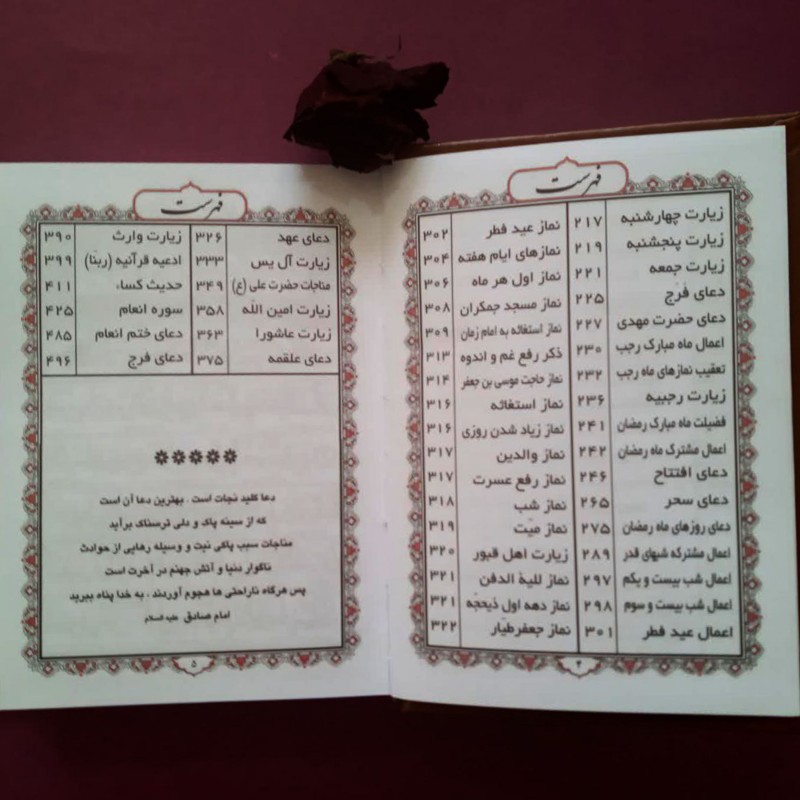 فهرست
زیارت چهارشنبه ۲۱۷
زیارت پنجشنبه ۲۱۹
زیارت جمعه ۲۲۱
دعای فَرَج ۲۲۵
دعای حضرت مهدی ۲۲۷
اعمال ماه مبارک رجب ۲۳۰
تعقیب نمازهای ماه رجب ۲۳۲
زیارت رجبیه ۲۳۶
فضیلت ماه مبارک رمضان ۲۴۱
اعمال مشترک ماه رمضان ۲۴۲
دعای افتتاح ۲۴۶
دعای سحر ۲۶۵
دعای روزهای ماه رمضان ۲۷۵
اعمال مشترکه شبهای قدر ۲۸۹
اعمال شب بیست و یکم ۲۹۷
اعمال شب بیست و سوم ۲۹۸
اعمال عید فطر ۳۰۱
نماز عید فطر ۳۰۲
نمازهای ایام هفته ۳۰۴
نماز اول هر ماه ۳۰۶
نماز مسجد جمکران ۳۰۸
نماز استغاثه به امام زمان ۳۰۹
ذکر رفع غم و اندوه ۳۱۳
نماز حاجت موسی بن جعفر ۳۱۴
نماز استغاثه ۳۱۶
نماز زیاد شدن روزی ۳۱۶
نماز والدین ۳۱۷
نماز رفع عسرت ۳۱۷
نماز شب ۳۱۸
نماز میّت ۳۱۹
زیارت اهل قبور ۳۲۰
نماز للیة الدفن ۳۲۱
نماز دهه اول ذیحجّه ۳۲۱
نماز جعفرطیّار ۳۲۲
۴
فهرست
دعای عهد ۳۲۶
زیارت آل یس ۳۳۳
مناجات حضرت علی (ع) ۳۴۹
زیارت امین اللّه ۳۵۸
زیارت عاشورا ۳۶۳
دعای علقمه ۳۷۵
زیارت وارث ۳۹۰
ادعیه قرآنیه (ربّنا) ۳۹۹
حدیث کساء ۴۱۱
سوره انعام ۴۲۵
دعای ختم انعام ۴۸۵
دعای فرج ۴۹۶
دعا کلید نجات است . بهترین دعا آن است
که از سینه پاک و دلی ترسناک برآید
مناجات سبب پاکی نیت و وسیله رهایی از حوادث
ناگوار دنیا و آتش جهنم در آخرت است
پس هرگاه ناراحتی ها هجوم آوردند ، به خدا پناه ببرید
امام صادق علیه السلام
۵